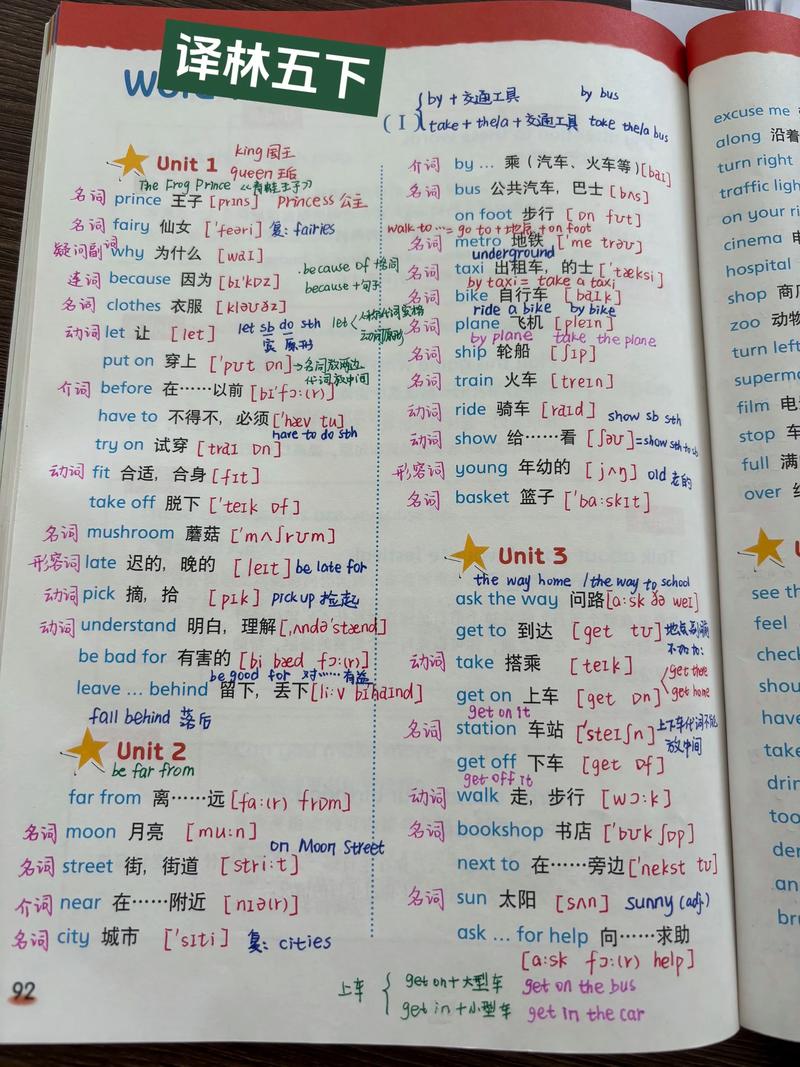 译林五下
Unit 1
king 国王
queen 王后
The Frog Prince 《青蛙王子》
名词 prince 王子 [prɪns] princess 公主
名词 fairy 仙女 ['feəri] 复: fairies
疑问副词 why 为什么 [waɪ]
because of + 名词
连词 because 因为 [bɪ'kɒz] because + 句子
名词 clothes 衣服 [kləʊðz]
动词 let 让 [let] let sb do sth let
宾 原形 动词原形
put on 穿上 ['pʊt ɒn] → 名词放两边
代词放中间
介词 before 在……以前 [bɪ'fɔː(r)]
have to 不得不，必须 ['hæv tu]
have to do sth
try on 试穿 [traɪ ɒn]
动词 fit 合适，合身 [fɪt]
take off 脱下 ['teɪk ɒf]
名词 mushroom 蘑菇 ['mʌʃrʊm]
形容词 late 迟的，晚的 [leɪt] be late for
动词 pick 摘，拾 [pɪk] pick up 捡起
动词 understand 明白，理解 [ˌʌndə'stænd]
be bad for 有害的 [bi bæd fɔː(r)]
be good for 对……有益
leave ... behind 留下，丢下 [liːv bɪ'haɪnd]
fall behind 落后
Unit 2
be far from
far from 离……远 [fɑː(r) frɒm]
名词 moon 月亮 [muːn]
on Moon Street
名词 street 街，街道 [striːt]
介词 near 在……附近 [nɪə(r)]
名词 city 城市 ['sɪti] 复: cities
92
(I)
by + 交通工具 by bus
take + the/a + 交通工具 take the/a bus
介词 by ... 乘（汽车、火车等）[baɪ]
名词 bus 公共汽车，巴士 [bʌs]
on foot 步行 [ɒn fʊt]
walk to … = go to + 地点 + on foot
名词 metro 地铁 ['metrəʊ]
underground
名词 taxi 出租车，的士 ['tæksi]
by taxi = take a taxi
名词 bike 自行车 [baɪk]
ride a bike by bike
名词 plane 飞机 [pleɪn]
by plane take the plane
名词 ship 轮船 [ʃɪp]
名词 train 火车 [treɪn]
动词 ride 骑车 [raɪd]
show sb sth
动词 show 给……看 [ʃəʊ] = show sth to sb
形容词 young 年幼的 [jʌŋ] old 老的
名词 basket 篮子 ['bɑːskɪt]
Unit 3
the way home / the way to school
ask the way 问路 [ɑːsk ðə weɪ]
get to 到达 [get tʊ] 地点副词
不加to:
动词 take 搭乘 [teɪk]
get there
get on 上车 [get ɒn] get home
get on it
名词 station 车站 ['steɪʃn] 上下车代词不能
放中间
get off 下车 [get ɒf]
get off it
动词 walk 走，步行 [wɔːk]
名词 bookshop 书店 ['bʊkʃɒp]
next to 在……旁边 ['nekst tʊ]
名词 sun 太阳 [sʌn] sunny (adj.)
ask ... for help 向……求助
[ɑːsk fɔː(r) help]
上车
get on + 大型车 get on the bus
get in + 小型车 get in the car
excuse me
along 沿着
turn right
traffic ligh
on your ri
cinema
hospital
shop 商
zoo 动物
turn left
superma
film 电
stop 车
full 满
over
see th
feel
check
shou
have
take
drin
too
der
an
bru